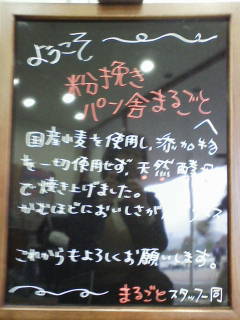 ようこそ
粉挽き
パン舎まるごと
へ
国産小麦を使用し、添加物
を一切使用せず、天然酵母
で焼き上げました。
かむほどにおいしさが
これからもよろしくお願いします。
まるごとスタッフ一同